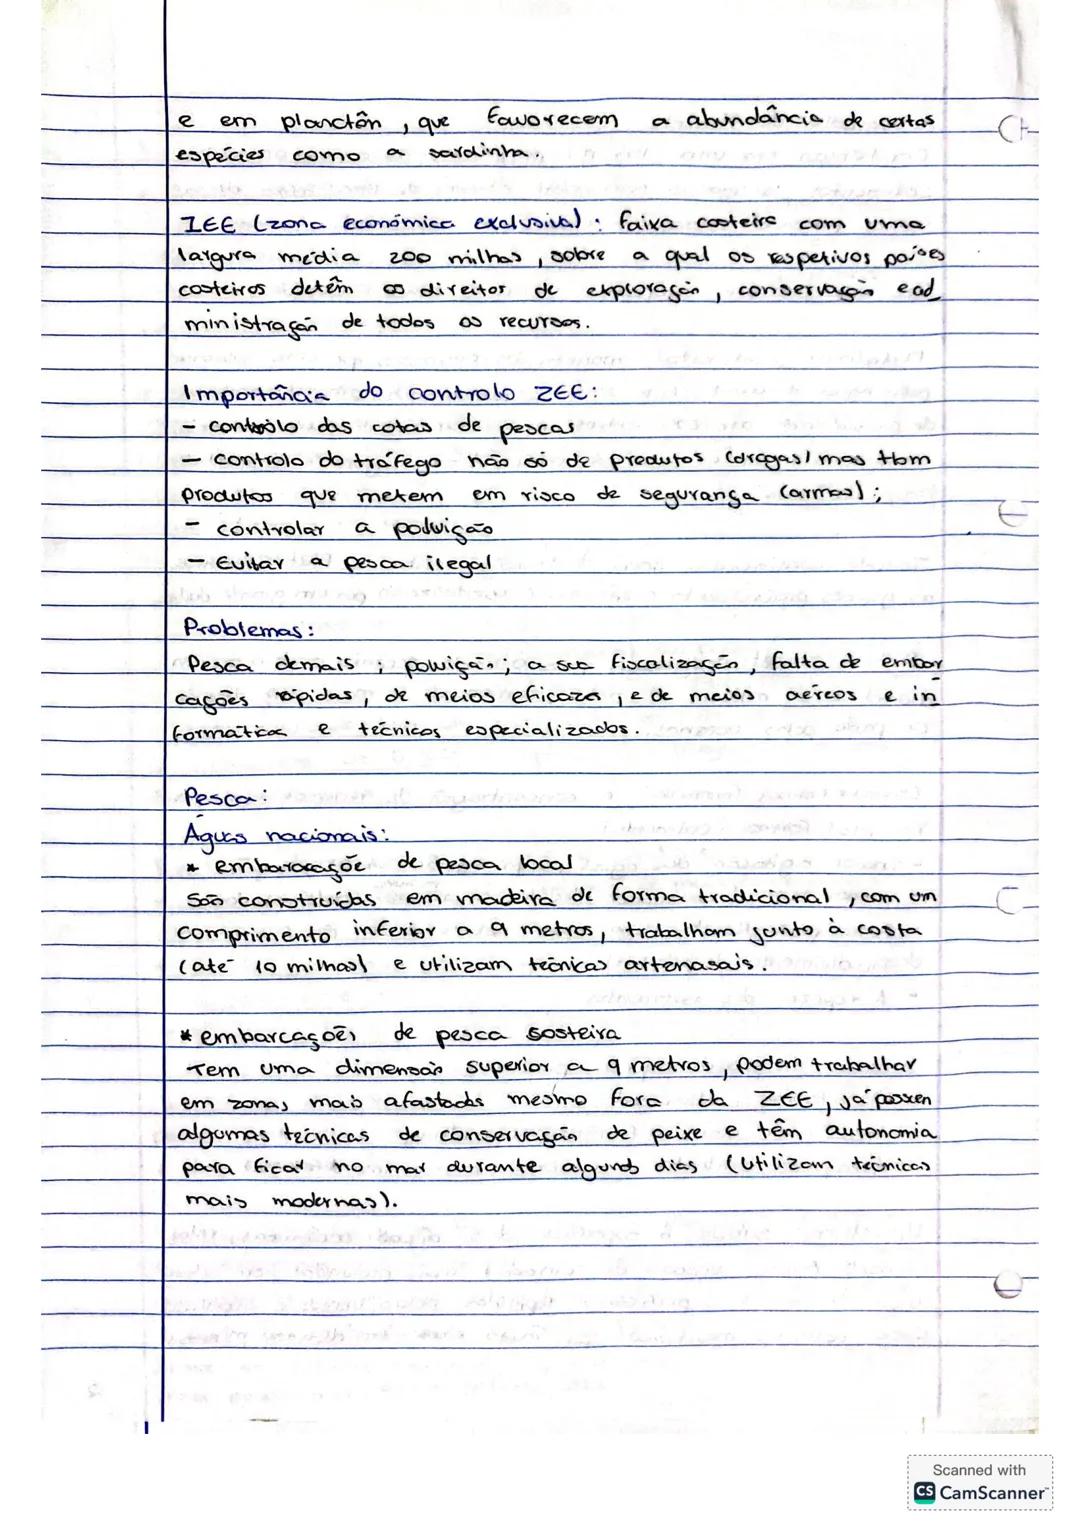 e em planctôn, que favorecem a abundância de certas
espécies como a sardinha.
ZEE (zona económica exclusiva): faixa costeira com uma
largura média 200 milhas, sobre a qual os respetivos países
costeiros detêm os direitos de exploração, conservação e ad
ministração de todos os recursos.
Importância do controlo ZEE:
- controlo das cotas de pescas
- controlo do tráfego não só de produtos (drogas) mas tbm
produtos que metem em risco de segurança (armas);
- controlar a poluição
- Evitar a pesca ilegal
Problemas:
Pesca demais ; poluição; a sua fiscalização, falta de embar
cações rápidas, de meios eficazes, e de meios aéreos e in
formática e técnicos especializados.
Pesca:
Águas nacionais:
* embarcaçõe de pesca local
São construídas em madeira de forma tradicional, com um
comprimento inferior a 9 metros, trabalham junto à costa
(até 10 milhas) e utilizam técnicas artenasais.
* embarcações de pesca sosteira
Tem uma dimensão superior a 9 metros, podem trabalhar
em zonas mais afastadas mesmo fora da ZEE, já possen
algumas técnicas de conservação de peixe e têm autonomia
para ficar no mar durante alguns dias (utilizam técnicas
mais modernas).
Scanned with
CS CamScanner